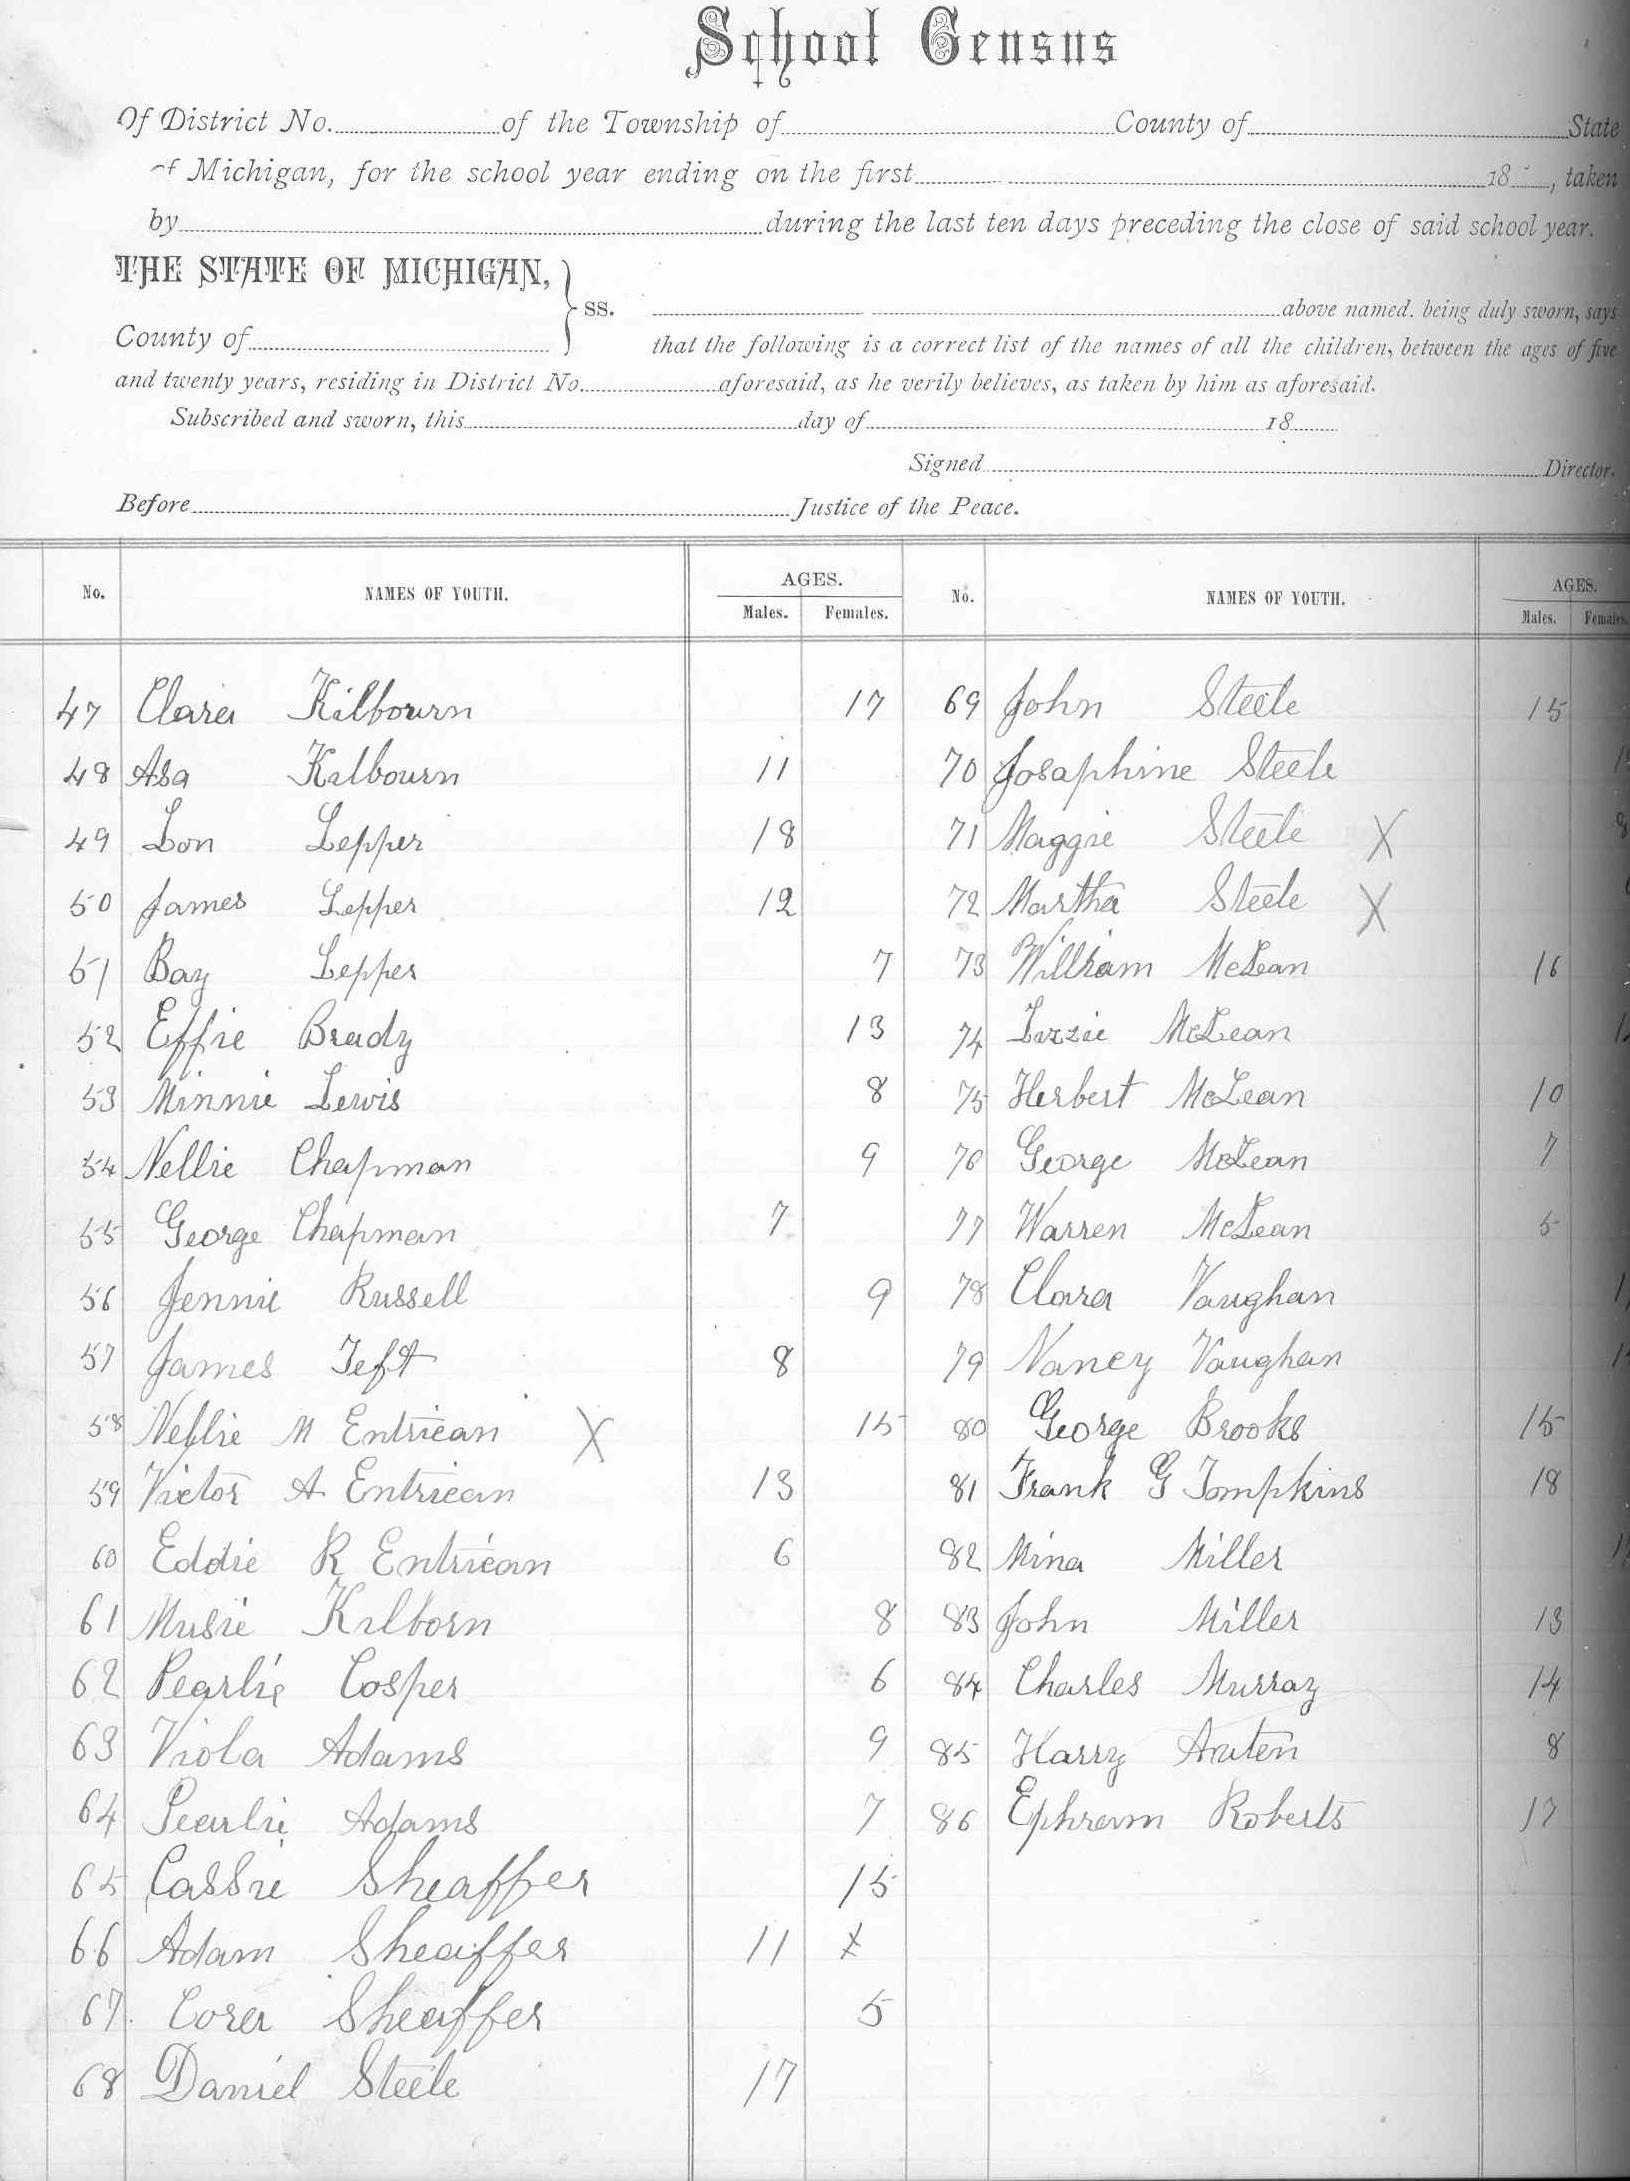 School Census
Of District No. of the Township of County of State
of Michigan, for the school year ending on the first 18 , taken
by during the last ten days preceding the close of said school year.
THE STATE OF MICHIGAN,
ss. above named. being duly sworn, says
County of that the following is a correct list of the names of all the children, between the ages of five
and twenty years, residing in District No. aforesaid, as he verily believes, as taken by him as aforesaid.
Subscribed and sworn, this day of 18
Signed Director.
Before Justice of the Peace.
No. NAMES OF YOUTH. AGES. Males. Females. No. NAMES OF YOUTH. AGES. Males. Females.
47 Clara Kilbourn 17 69 John Steele 15
48 Asa Kilbourn 11 70 Josaphine Steele
49 Lon Lepper 18 71 Maggie Steele X
50 James Lepper 12 72 Martha Steele X
51 Bay Lepper 7 73 William McLean 16
52 Effie Brady 13 74 Lizzie McLean
53 Minnie Lewis 8 75 Herbert McLean 10
54 Nellie Chapman 9 76 George McLean 7
55 George Chapman 7 77 Warren McLean 5
56 Jennie Russell 9 78 Clara Vaughan
57 James Teft 8 79 Nancy Vaughan
58 Nellie M Entrican X 15 80 George Brooks 15
59 Victor A Entrican 13 81 Frank G Tompkins 18
60 Eddie R Entrican 6 82 Mina Miller
61 Musie Kilborn 8 83 John Miller 13
62 Pearlie Cosper 6 84 Charles Murray 14
63 Viola Adams 9 85 Harry Auten 8
64 Pearlie Adams 7 86 Ephram Roberts 17
65 Cassie Sheaffer 15
66 Adam Sheaffer 11 x
67 Cora Sheaffer 5
68 Daniel Steele 17